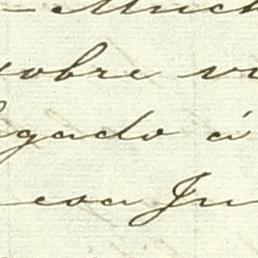 - Much
sobre v
gado á
coa Ju